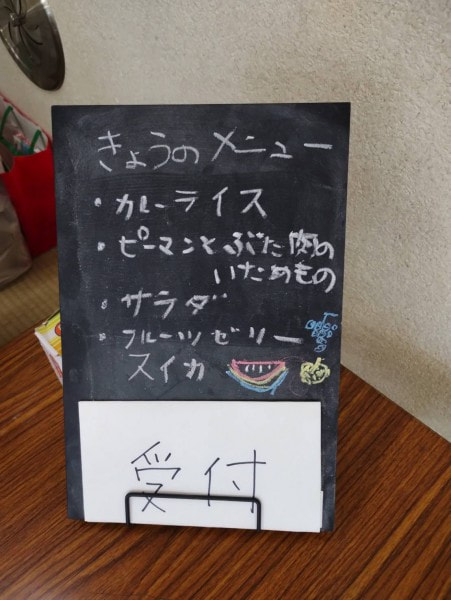 きょうのメニュー
・カレーライス
・ピーマンとぶた肉の
いためもの
・サラダ
・フルーツゼリー
スイカ
受付